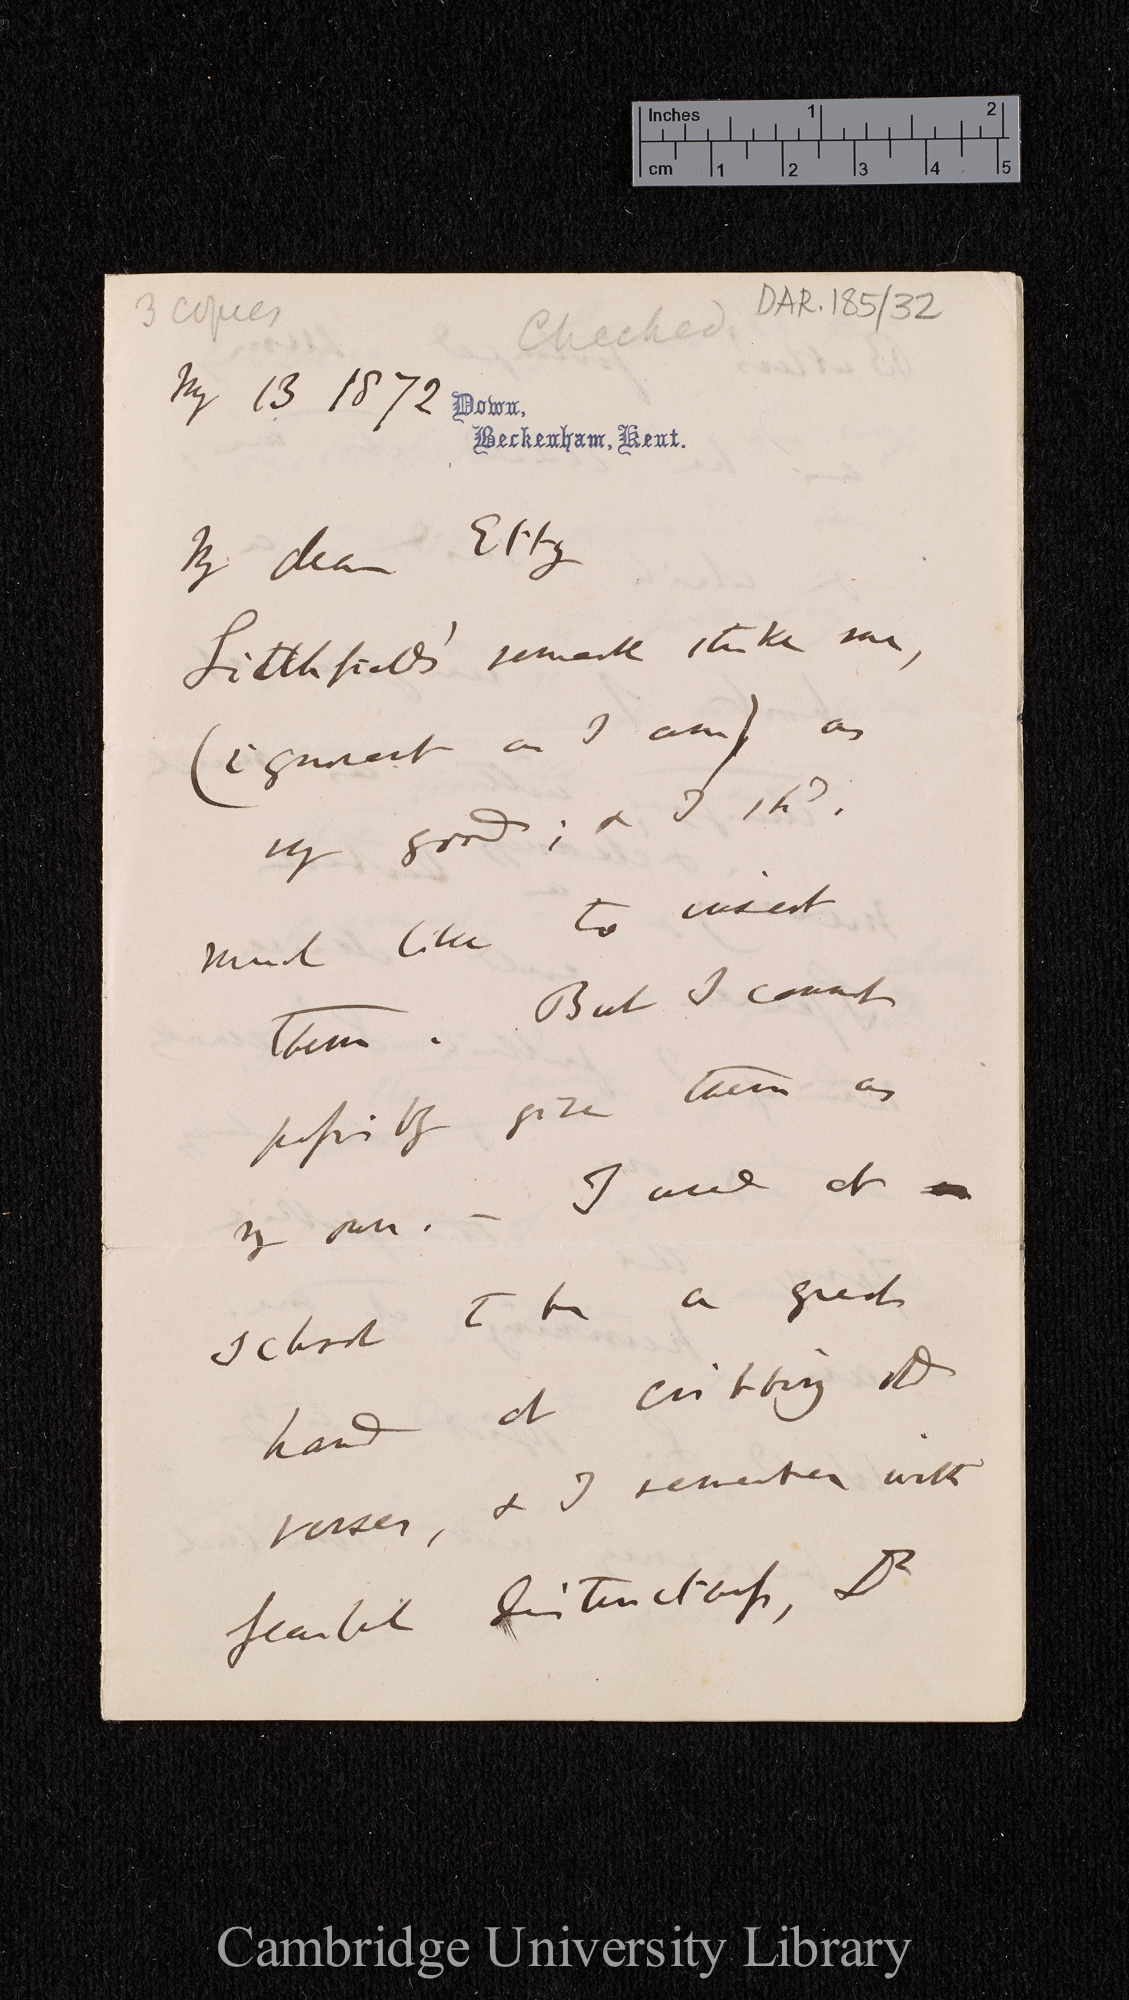 Inches 1 2
cm 1 2 3 4 5
3 copies
Checked
DAR.185/32
My 13 1872
Down,
Beckenham, Kent.
My dear Etty
Litchfield's remarks strike me,
(ignorant as I am) as
very good; & I shd.
much like to insert
them. But I cannot
possibly give them as
my own. — I used at
school to be a great
hand at cribbing old
verses, & I remember with
fearful distinctness, Dr
Cambridge University Library